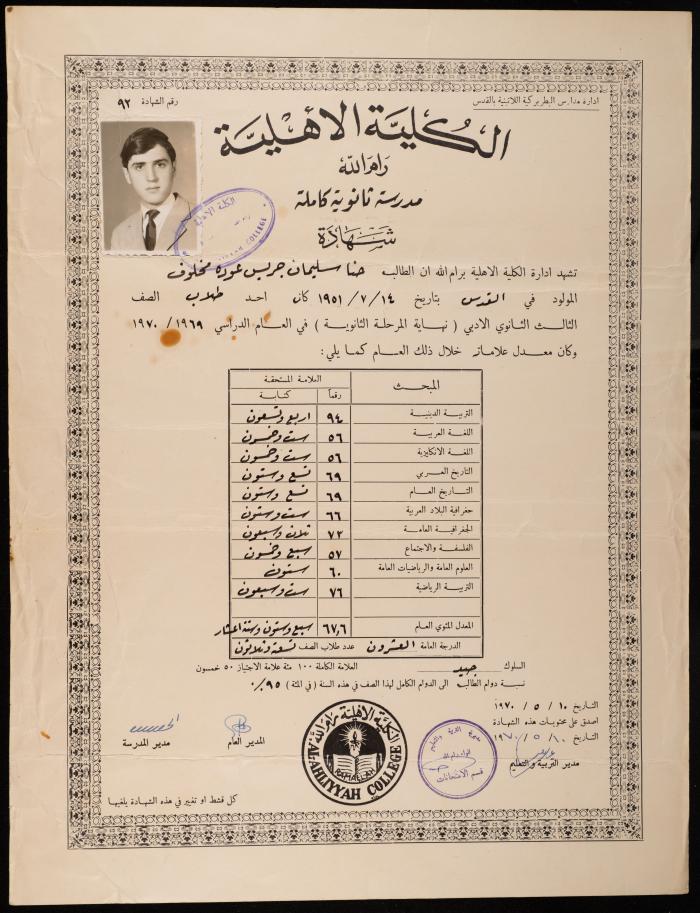 ادارة مدارس البطريركية اللاتينية بالقدس
رقم الشهادة ٩٢
الكلية الاهلية
رام الله
مدرسة ثانوية كاملة
شهادة
تشهد ادارة الكلية الاهلية برام الله ان الطالب حنا سليمان جريس عوده مخلوف
المولود في القدس بتاريخ ١٤ / ٧ / ١٩٥١ كان احد طلاب الصف
الثالث الثانوي الادبي ( نهاية المرحلة الثانوية ) في العام الدراسي ١٩٦٩ / ١٩٧٠
وكان معدل علاماته خلال ذلك العام كما يلي :
المبحث العلامة المستحقة
رقماً كتابة
التربية الدينية ٩٤ اربع وتسعون
اللغة العربية ٥٦ ست وخمسون
اللغة الانكليزية ٥٦ ست وخمسون
التاريخ العربي ٦٩ تسع وستون
التاريخ العام ٦٩ تسع وستون
جغرافية البلاد العربية ٦٦ ست وستون
الجغرافية العامة ٧٣ ثلاث وسبعون
الفلسفة والاجتماع ٥٧ سبع وخمسون
العلوم العامة والرياضيات العامة ٦٠ ستون
التربية الرياضية ٧٦ ست وسبعون
المعدل المئوي العام ٦٧,٦ سبع وستون وستة اعشار
الدرجة العامة العشرون عدد طلاب الصف تسعة وثلاثون
السلوك جيد العلامة الكاملة ١٠٠ مئة علامة الاجتياز ٥٠ خمسون
نسبة دوام الطالب الى الدوام الكامل لهذا الصف في هذه السنة ( في المئة ) ٩٥ ٪
التاريخ ١٠ / ٥ / ١٩٧٠
اصدق على محتويات هذه الشهادة
التاريخ ١٠ / ٥ / ١٩٧٠
مدير التربية والتعليم
المدير العام
مدير المدرسة
الكلية الاهلية رام الله
RAMALLAH
AL-AHLIYYAH COLLEGE
قسم الامتحانات
الكلية الاهلية
COLLEGE
كل قشط او تغيير في هذه الشهادة يلغيها